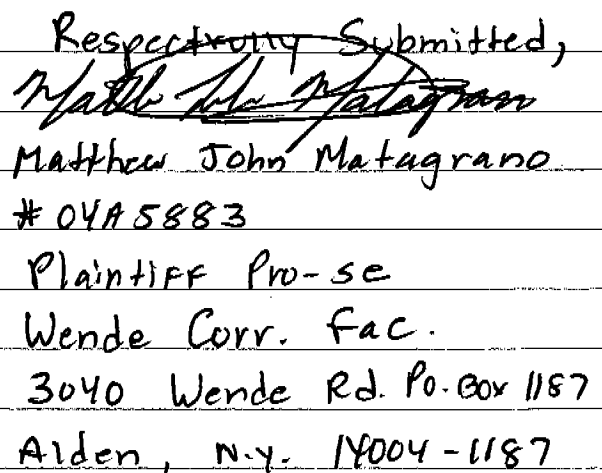 Respectfully Submitted,
Matth John Matagrano
Matthew John Matagrano
# 04A5883
Plaintiff Pro-se
Wende Corr. Fac.
3040 Wende Rd. Po. Box 1187
Alden, N.y. 14004-1187